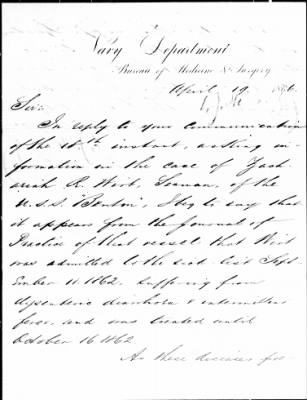 Navy Department
Bureau of Medicine & Surgery
April 19, 1876.
Sir:
In reply to your communication
of the 15th instant, asking in-
formation in the case of Zach-
ariah R. Wirt, Seaman, of the
U.S.S. "Benton", I beg to say that
it appears from the Journal of
Practice of that vessel, that Wirt
was admitted to the sick list Sept-
ember 11 1862, suffering from
dysenteric diarrhoea & intermittent
fever, and was treated until
October 16 1862.
As these diseases